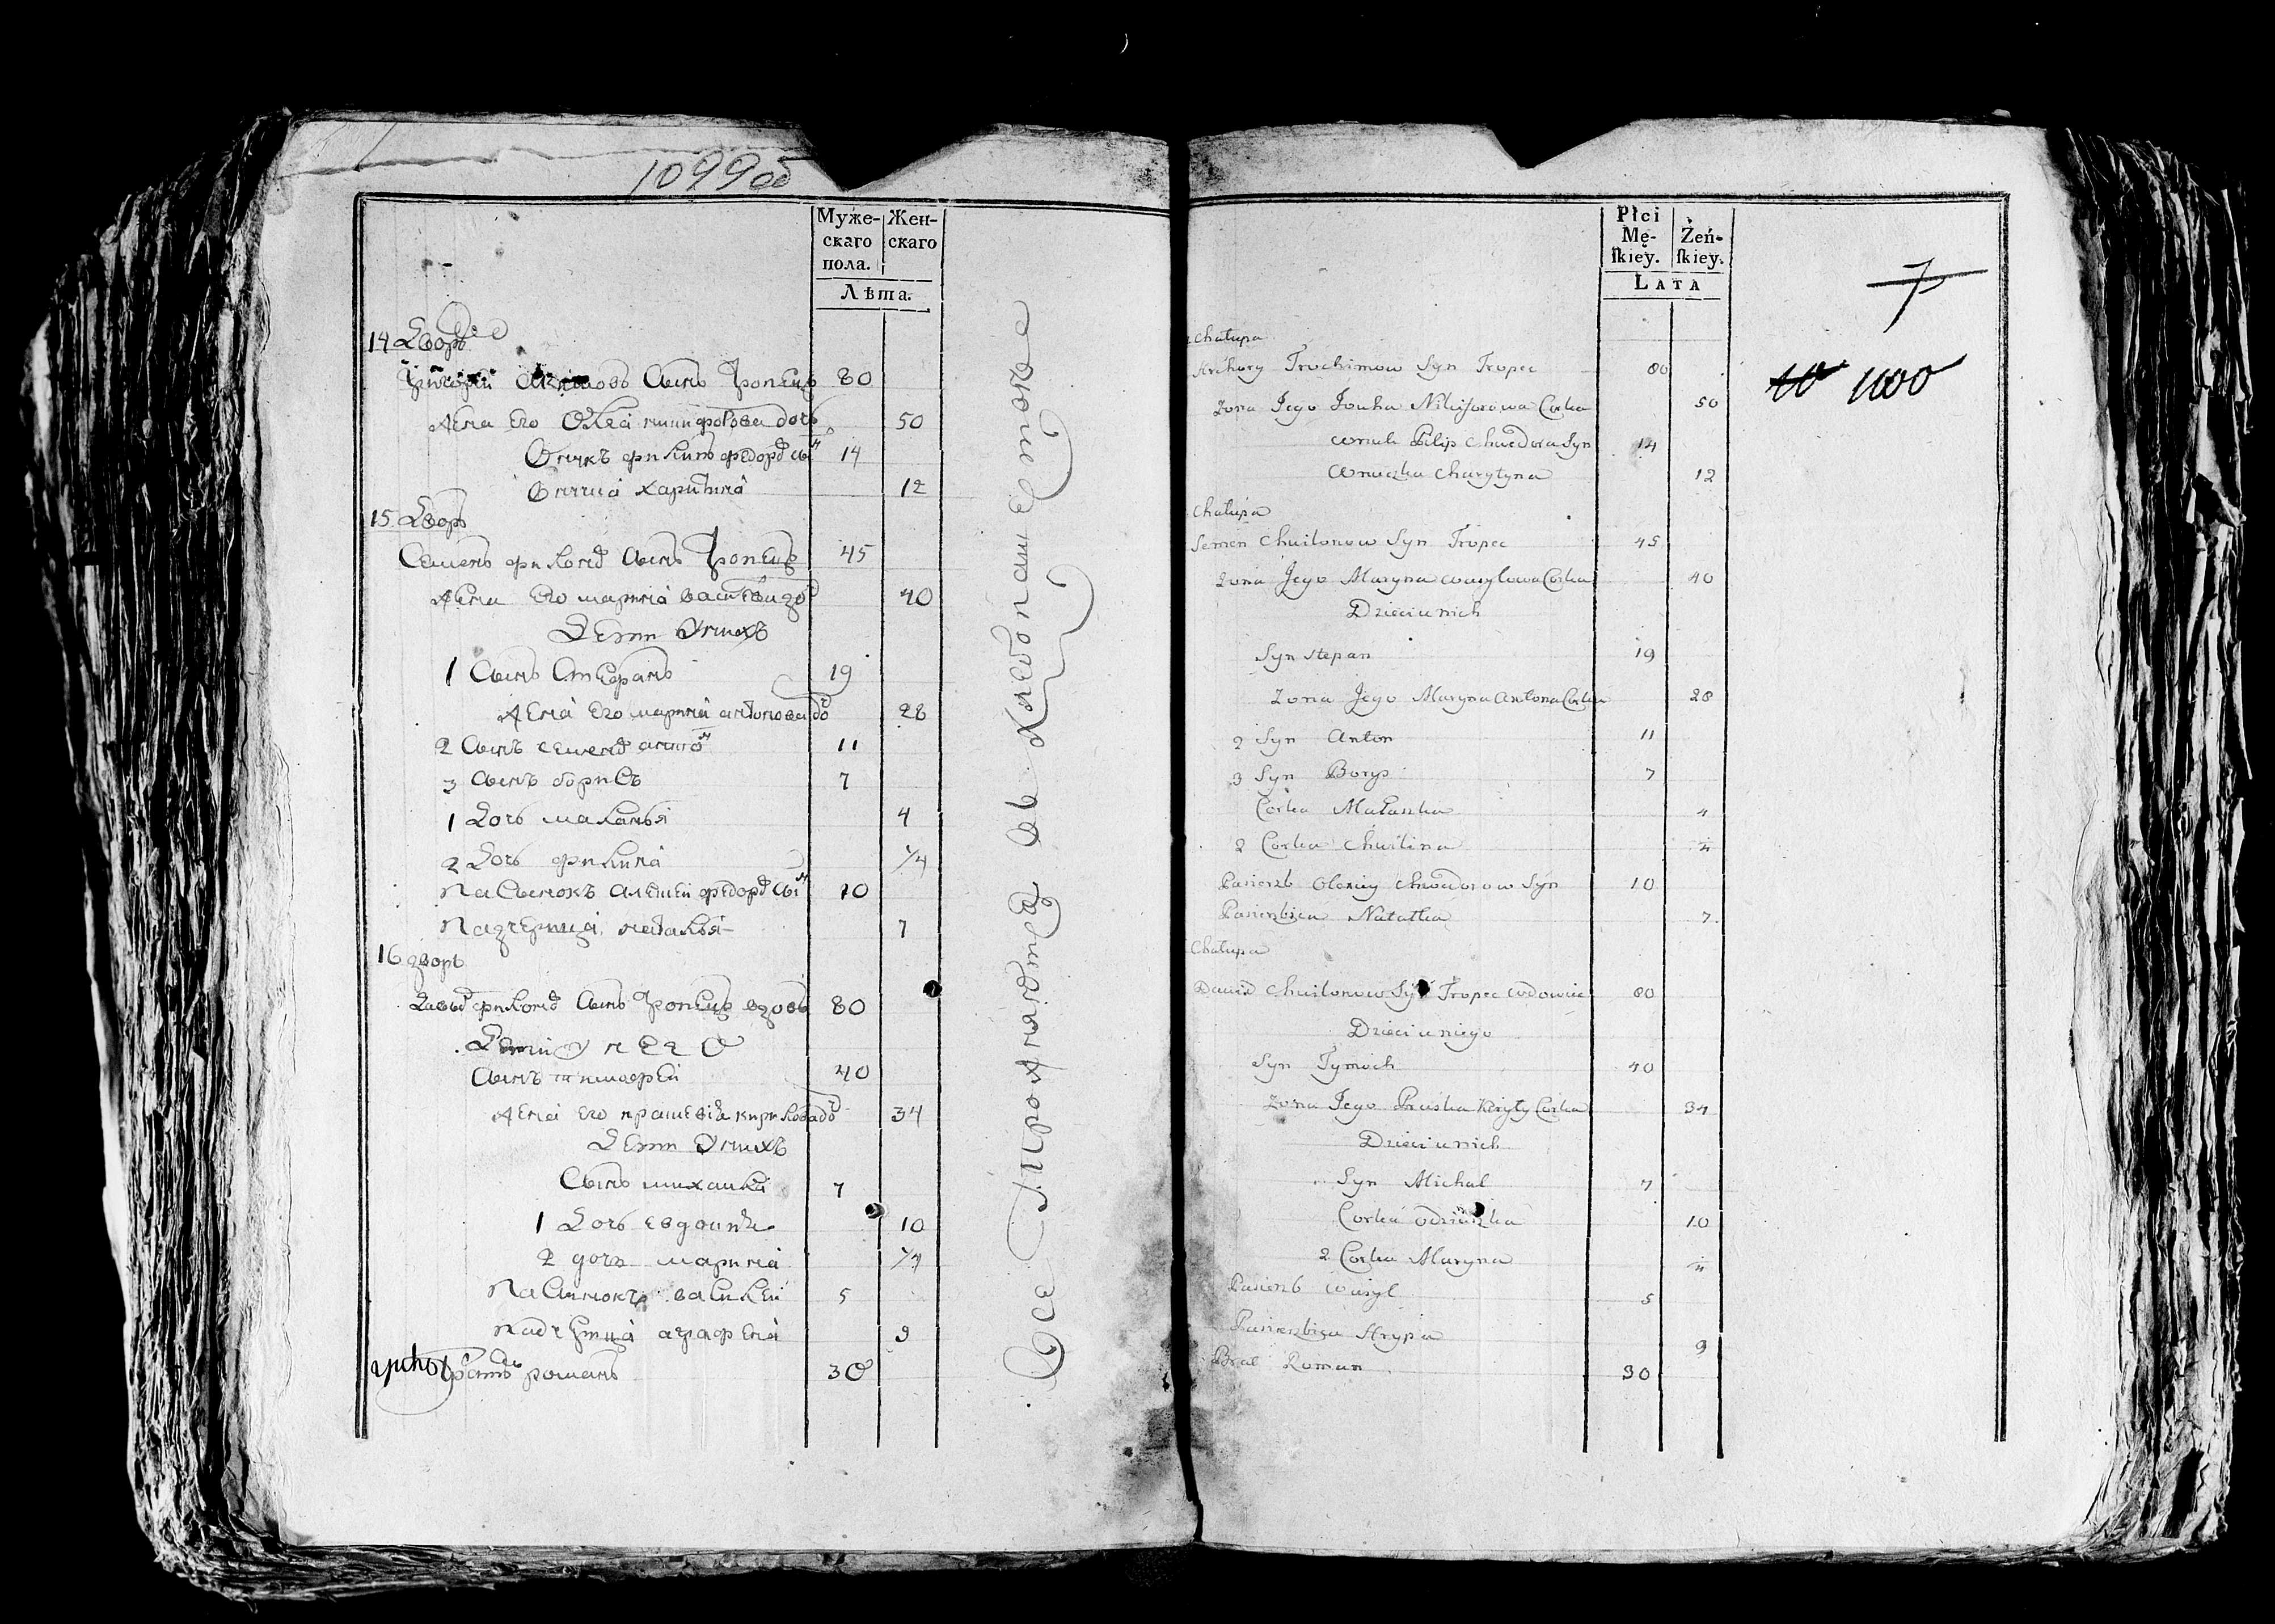 1099 об
Муже-
скаго
пола.
Жен-
скаго
Лѣта.
14 Дворъ
Григорей сынъ Тропецъ 80
Жена его никифорова дочь 50
Внукъ филипъ федоро сынъ 14
Внучка харитина 12
15 Дворъ
Семенъ филоно сынъ Тропецъ 45
Жена его марина василева до 40
Дети У нихъ
1 Сынъ Стефанъ 19
Жена его марина антонова до 28
2 Сынъ семено антонъ 11
3 Сынъ борисъ 7
1 Дочь маланья 4
2 Дочь филина 1/4
Пасынокъ алексей федоро сынъ 10
Падчерица наталья 7
16 дворъ
Давыд филоно сынъ Тропецъ вдовъ 80
Дети У него
Сынъ тимофей 40
Жена его прасковia кирилова до 34
Дети У нихъ
Сынъ михаила 7
1 Дочь евдоким 10
2 дочь марина 1/4
Пасынокъ василей 5
Падчерица аграфена 9
братъ романъ 30
Płci
Mę-
skiey.
Żeń-
skiey.
LATA
7
10 1000
Chałupa
Trochimow Syn Tropec 80
Żona Jego Nikiforowa Corka 50
wnuk Filip Chwedora Syn 14
wnuczka Charytyna 12
Chałupa
Semen Chwilonow Syn Tropec 45
Żona Jego Maryna wasylowa Corka 40
Dzieci u nich
Syn Stepan 19
Żona Jego Maryna Antona Corka 28
2 Syn Anton 11
3 Syn Borys 7
Corka Małaszka 4
2 Corka Chwilina
Pasierzb Olexiey Chwedorow Syn 10
Pasierzbica Natalka 7
Chałupa
Dawid Chwilonow Syn Tropec wdowiec 80
Dzieci u niego
Syn Tymoch 40
Żona Jego Pruska Kiryły Corka 34
Dzieci u nich
Syn Michal 7
Corka 10
2 Corka Maryna
Pasierzb wasyl 5
Pasierzbica Hrypa 9
Brat Roman 30